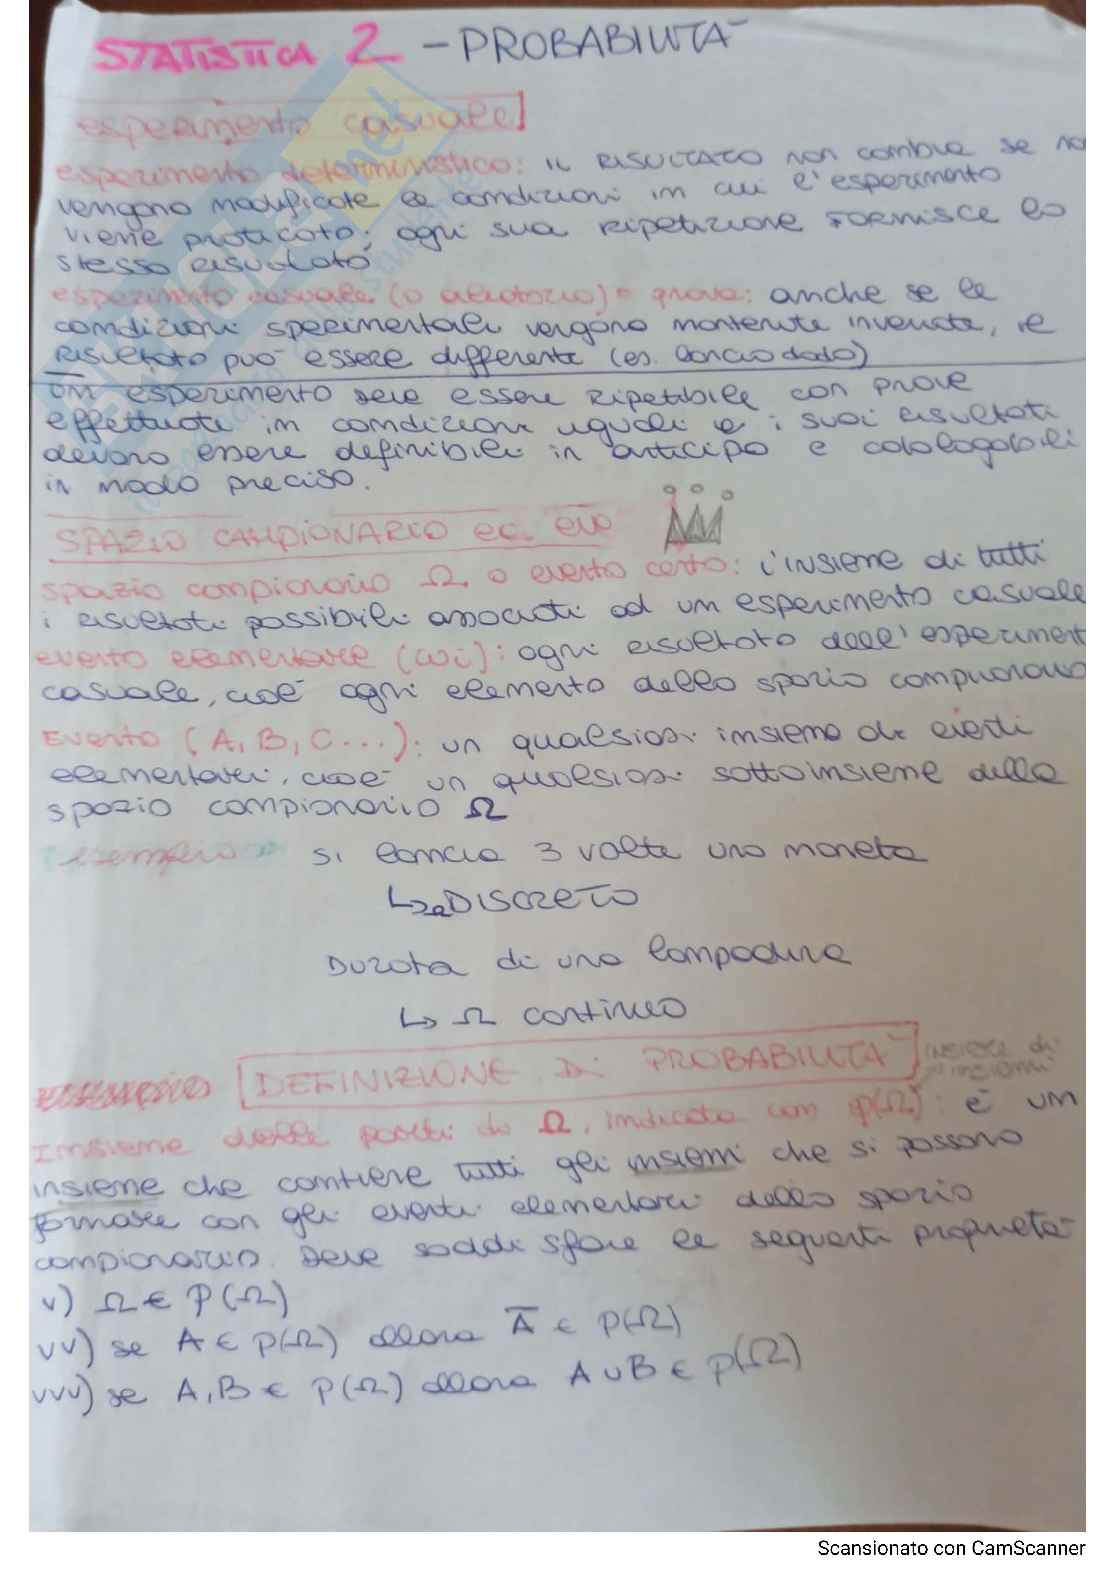 STATISTICA 2 - PROBABILITÀ
esperimento casuale
esperimento deterministico: il RISULTATO non cambia se non
vengono modificate le condizioni in cui l'esperimento
viene praticato; ogni sua ripetizione FORNISCE lo
stesso risultato
esperimento casuale (o aleatorio) = prova: anche se le
condizioni sperimentali vengono mantenute invariate, il
risultato può essere differente (es. lancio dado)
un esperimento deve essere ripetibile con prove
effettuate in condizioni uguali e i suoi risultati
devono essere definibili in anticipo e catalogabili
in modo preciso.
SPAZIO CAMPIONARIO ed
spazio campionario Ω o evento certo: l'insieme di tutti
i risultati possibili associati ad un esperimento casuale
evento elementare (ωi): ogni risultato dell'esperiment
casuale, cioè ogni elemento dello spazio campionario
Evento (A, B, C...): un qualsiasi insieme di eventi
elementari, cioè un qualsiasi sottoinsieme dello
spazio campionario Ω
esempio si lancia 3 volte una moneta
↳ Ω DISCRETO
Durata di una lampadina
↳ Ω continuo
DEFINIZIONE DI PROBABILITÀ insieme di
insiemi
Insieme delle parti di Ω, indicato con p(Ω): è un
insieme che contiene tutti gli insiemi che si possono
formare con gli eventi elementari dello spazio
campionario. Deve soddisfare le seguenti proprietà
v) Ω ∈ P(Ω)
vv) se A ∈ p(Ω) allora A̅ ∈ p(Ω)
vvv) se A, B ∈ p(Ω) allora A ∪ B ∈ p(Ω)
Scansionato con CamScanner